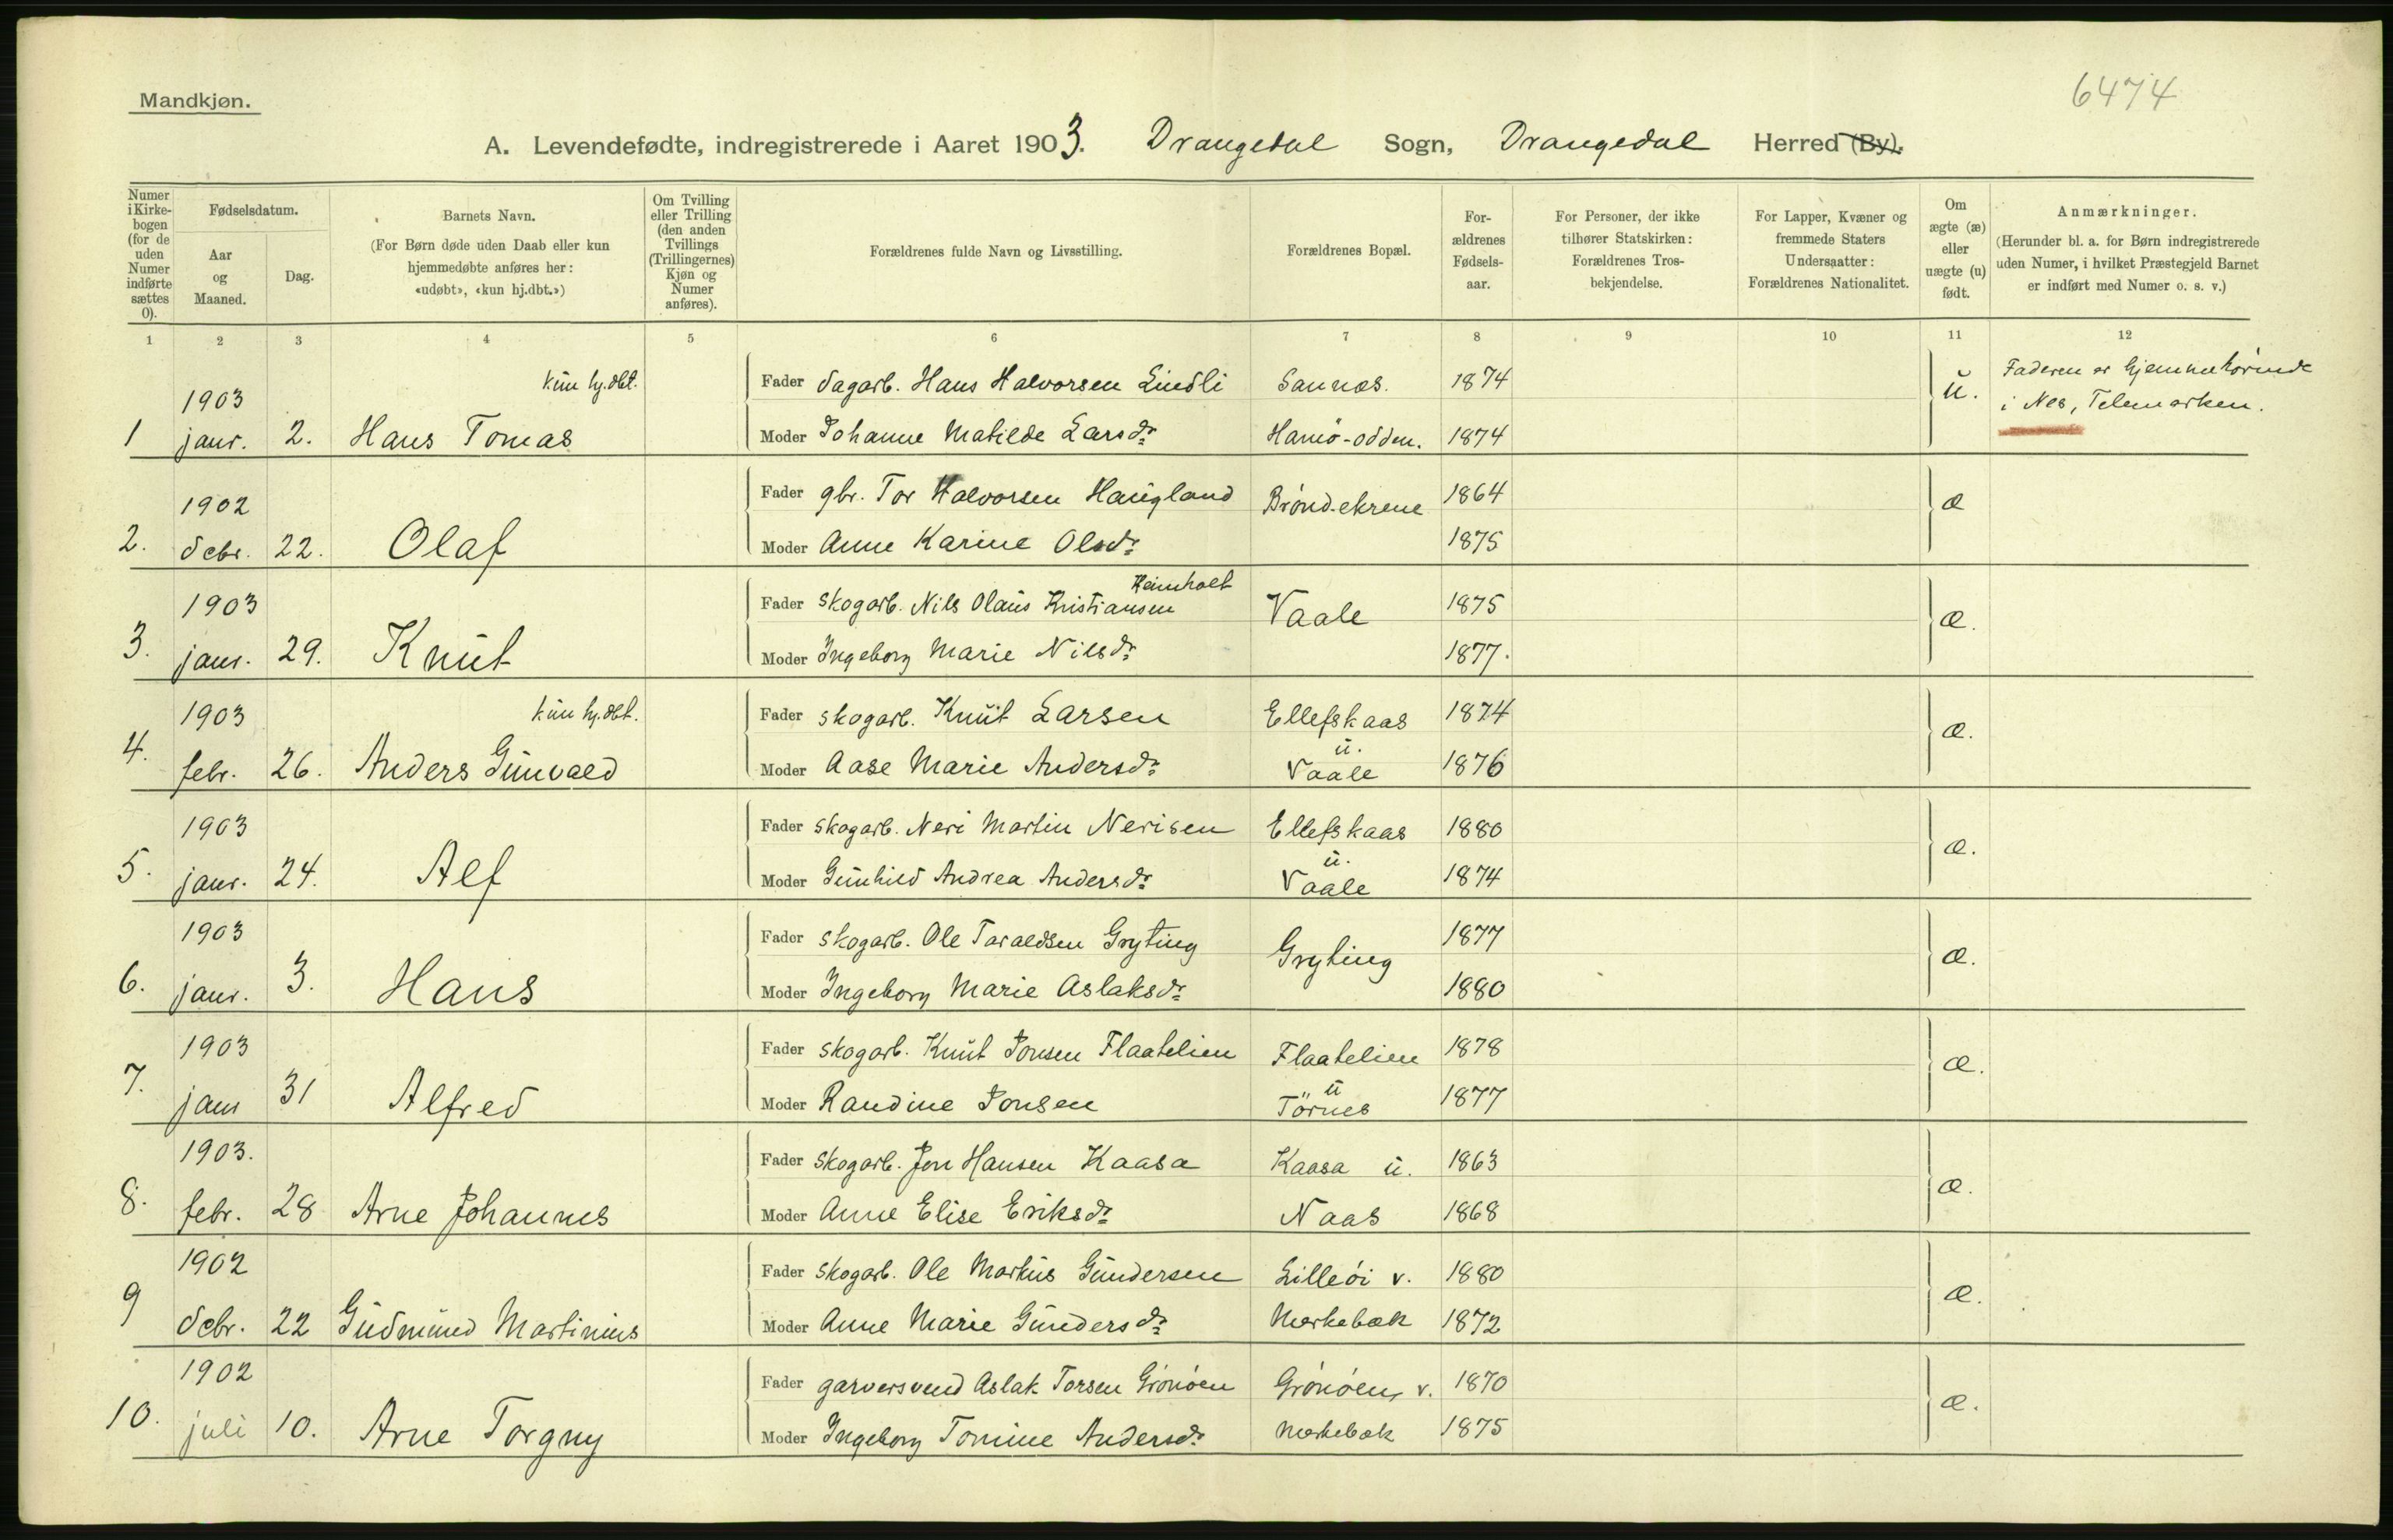 6474
Mandkjøn.
A. Levendefødte, indregistrerede i Aaret 1903. Drangedal Sogn, Drangedal Herred (By).
Numer i Kirke-bogen (for de uden Numer indførte sættes 0).
Fødselsdatum.
Aar og Maaned.
Dag.
Barnets Navn.
(For Børn døde uden Daab eller kun hjemmedøbte anføres her: «udøbt», «kun hj.dbt.»)
Om Tvilling eller Trilling (den anden Tvillings (Trillingernes) Kjøn og Numer anføres).
Forældrenes fulde Navn og Livsstilling.
Forældrenes Bopæl.
For-ældrenes Fødsels-aar.
For Personer, der ikke tilhører Statskirken: Forældrenes Tros-bekjendelse.
For Lapper, Kvæner og fremmede Staters Undersaatter: Forældrenes Nationalitet.
Om ægte (æ) eller uægte (u) født.
Anmærkninger.
(Herunder bl. a. for Børn indregistrerede uden Numer, i hvilket Præstegjeld Barnet er indført med Numer o. s. v.)
1 2 3 4 5 6 7 8 9 10 11 12
1903 kun hj.dbt. Fader dagarb. Hans Halvorsen Lindli Sannes. 1874 u. Faderen er hjemmehørende
i Nes, Telemarken.
1 janr. 2. Hans Tomas Moder Johanne Matilde Larsdr Hamø-odden. 1874
1902 Fader gbr. Tor Halvorsen Haugland Brøndekrene 1864 æ
2. debr. 22. Olaf Moder Anne Karine Olsdr 1875
1903 Fader skogarb. Nils Olaus Kristiansen Heimholt Vaale 1875 æ.
3. janr. 29. Knut Moder Ingeborg Marie Nilsdr 1877.
1903 kun hj.dbt. Fader skogarb. Knut Larsen Ellefskaas 1874 æ.
u.
4. febr. 26. Anders Gunvald Moder Aase Marie Andersdr Vaale 1876
1903 Fader skogarb. Neri Martin Nerisen Ellefskaas 1880 æ.
u.
5. janr. 24. Alf Moder Gunhild Andrea Andersdr Vaale 1874
1903 Fader skogarb. Ole Taraldsen Gryting Gryting 1877 æ.
6. janr. 3. Hans Moder Ingeborg Marie Aslaksdr 1880
1903 Fader skogarb. Knut Jonsen Flaatelien Flaatelien 1878 æ.
u
7. janr 31 Alfred Moder Randine Jonsen Törnes 1877
1903. Fader skogarb. Jon Hansen Kaasa Kaasa u. 1863 æ.
8. febr. 28 Arne Johannes Moder Anne Elise Eriksdr Naas 1868
1902 Fader skogarb. Ole Markus Gundersen Lilleøi v. 1880 æ.
9 debr. 22 Gudmund Martinius Moder Anne Marie Gundersdr Merkebæk 1872
1902 Fader garversvend Aslak Torsen Grønøen Grønøen v. 1870 æ.
10. juli 10. Arne Torgny Moder Ingeborg Tomine Andersdr Merkebæk 1875